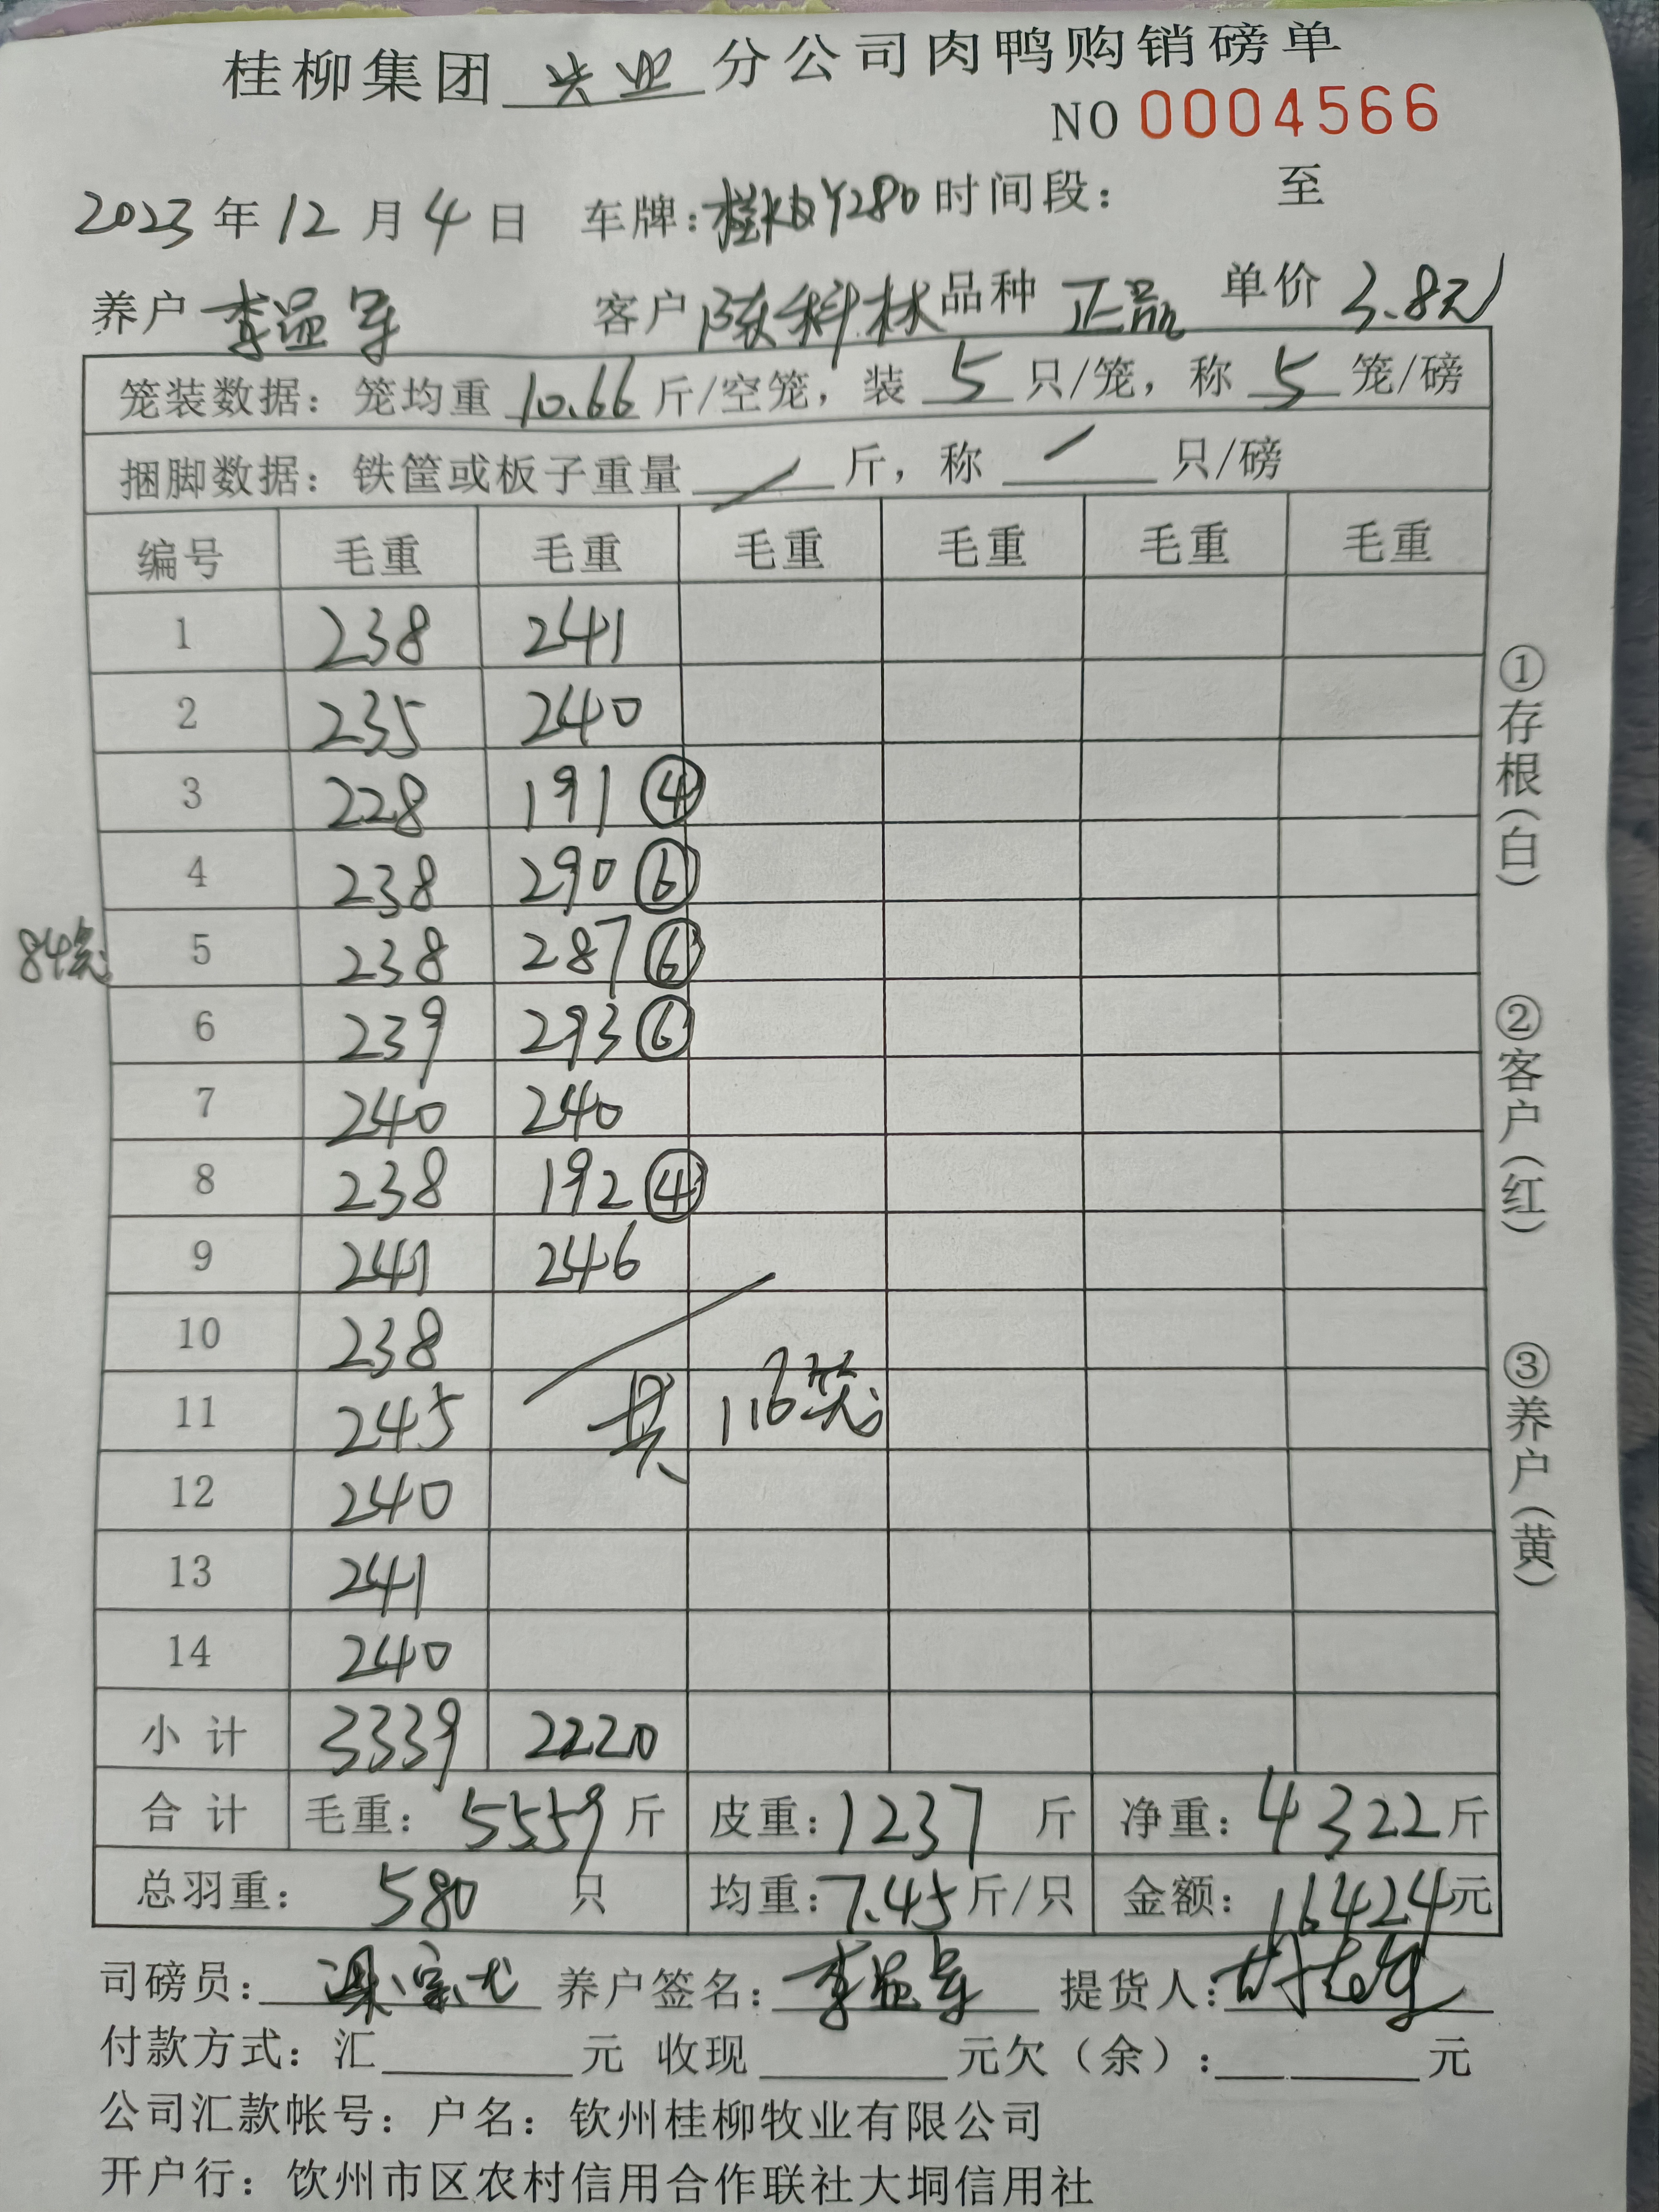 桂柳集团 兴业 分公司肉鸭购销磅单
NO 0004566
2023 年 12 月 4 日 车牌: 时间段: 至
养户 李益军 客户 陈科林 品种 正品 单价 3.8元
笼装数据: 笼均重 10.66 斤/空笼, 装 5 只/笼, 称 5 笼/磅
捆脚数据: 铁筐或板子重量 / 斤, 称 / 只/磅
编号 毛重 毛重 毛重 毛重 毛重 毛重
1 238 241
2 235 240
3 228 191 ④
4 238 290 ⑥
84笼 5 238 287 ⑥
6 239 293 ⑥
7 240 240
8 238 192 ④
9 241 246
10 238
11 245 共 116笼
12 240
13 241
14 240
小 计 3339 2220
合 计 毛重: 5559 斤 皮重: 1237 斤 净重: 4322 斤
总羽重: 580 只 均重: 7.45 斤/只 金额: 16424 元
司磅员: 养户签名: 李益军 提货人:
付款方式: 汇 元 收现 元欠(余): 元
公司汇款帐号: 户名: 钦州桂柳牧业有限公司
开户行: 饮州市区农村信用合作联社大垌信用社
①存根(白)
②客户(红)
③养户(黄)